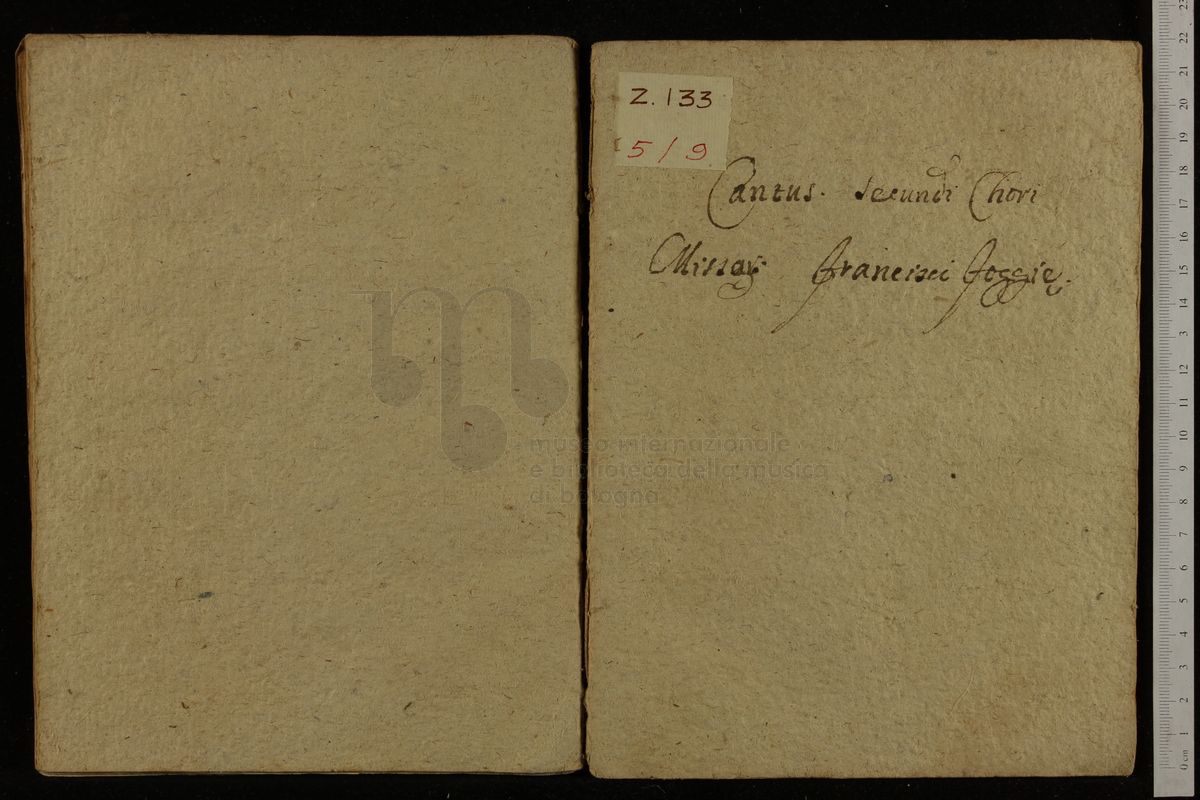 Z.133
5/9
Cantus. secundi Chori
Francisci Foggie.
museo internazionale
e biblioteca della musica
di bologna
0 cm 1 2 3 4 5 6 7 8 9 10 11 12 3 14 15 16 17 18 19 20 21 22 23